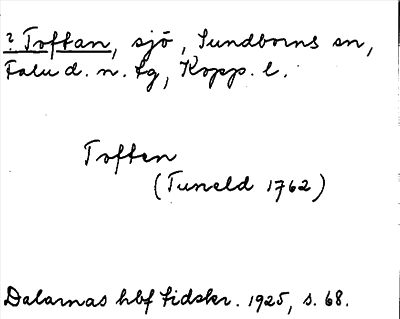 ? Toftan, sjö, Sundborns sn,
Falu d. n. tg, Kopp. l.
Toften
(Tuneld 1762)
Dalarnas hbf tidskr. 1925, s. 68.